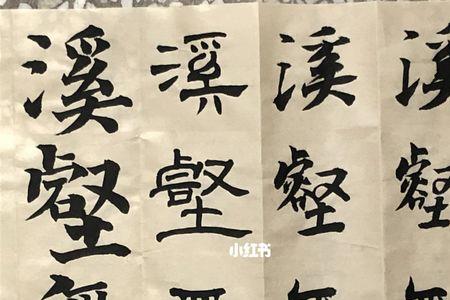 溪 溪 溪 溪
壑 壑 壑 壑
小红书